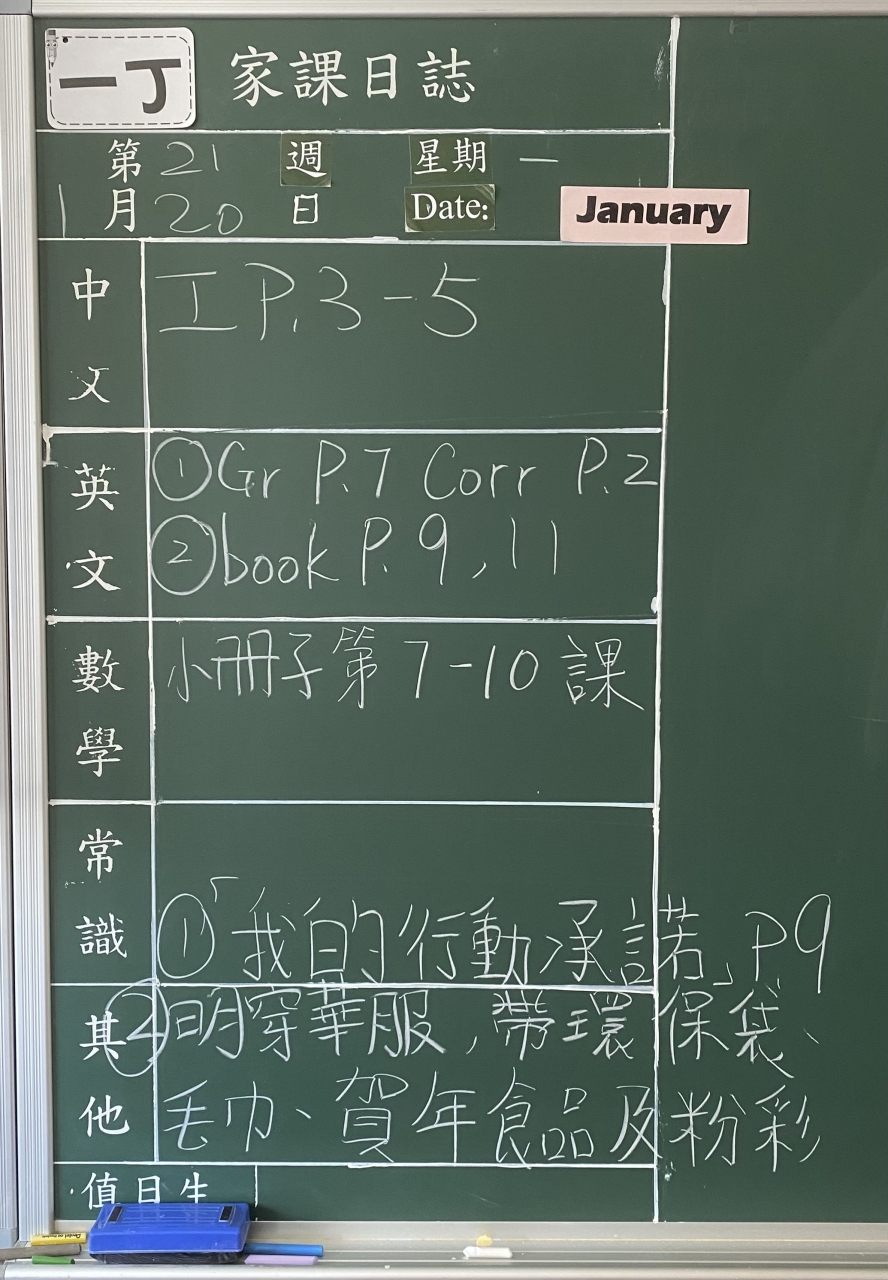 一丁 家課日誌
第 21 週 星期 一
1 月 20 日 Date: January
中文 工 P.3-5
英文 ① Gr P.7 Corr P.2
② book P. 9, 11
數學 小冊子第 7-10 課
常識
① 「我的行動承諾」P9
其他 ② 明穿華服,帶環保袋、
毛巾、賀年食品及粉彩
值日生